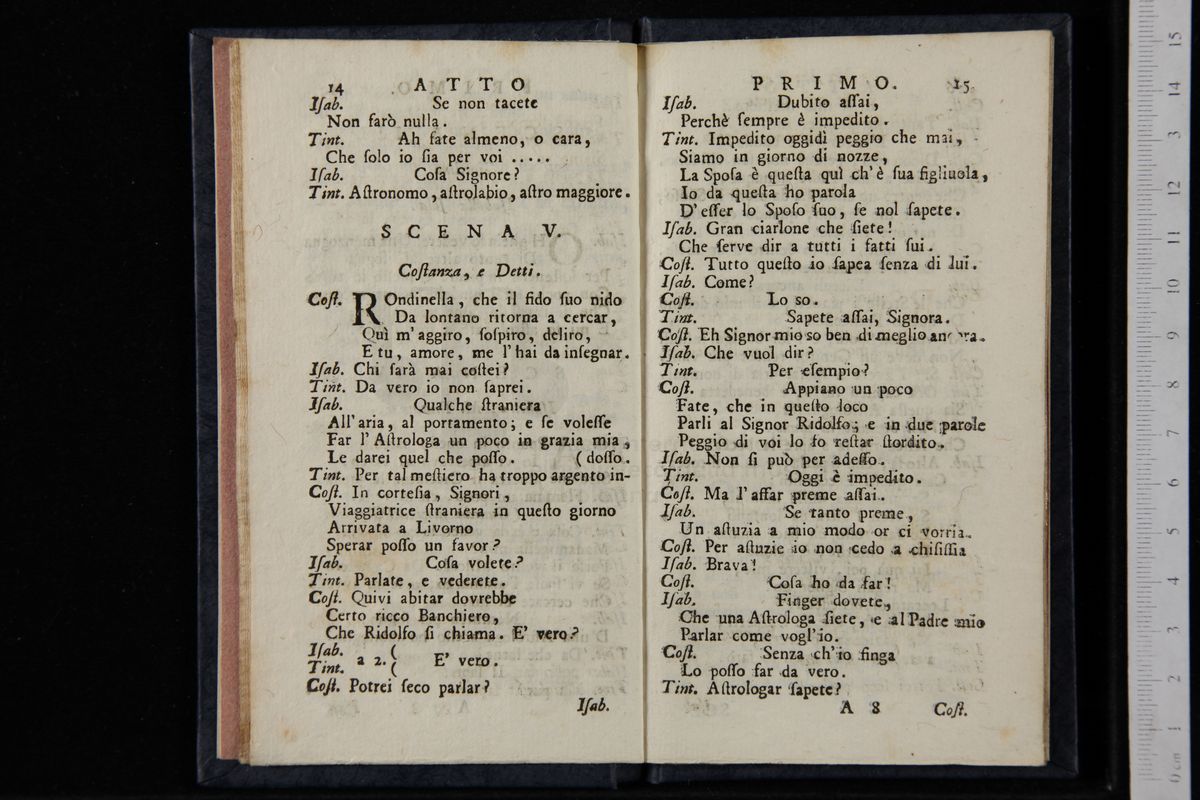 14 ATTO
Iſab. Se non tacete
Non farò nulla.
Tint. Ah fate almeno, o cara,
Che ſolo io ſia per voi .....
Iſab. Coſa Signore?
Tint. Aſtronomo, aſtrolabio, aſtro maggiore.
SCENA V.
Coſtanza, e Detti.
Coſt. ROndinella, che il fido ſuo nido
Da lontano ritorna a cercar,
Quì m'aggiro, ſoſpiro, deliro,
E tu, amore, me l'hai da inſegnar.
Iſab. Chi ſarà mai coſtei?
Tint. Da vero io non ſaprei.
Iſab. Qualche ſtraniera
All'aria, al portamento; e ſe voleſſe
Far l'Aſtrologa un poco in grazia mia,
Le darei quel che poſſo. (doſſo.
Tint. Per tal meſtiero ha troppo argento in-
Coſt. In corteſia, Signori,
Viaggiatrice ſtraniera in queſto giorno
Arrivata a Livorno
Sperar poſſo un favor?
Iſab. Coſa volete?
Tint. Parlate, e vederete.
Coſt. Quivi abitar dovrebbe
Certo ricco Banchiero,
Che Ridolfo ſi chiama. E' vero?
Iſab. (
a 2. E' vero.
Tint. (
Coſt. Potrei ſeco parlar?
Iſab.
PRIMO. 15
Iſab. Dubito aſſai,
Perchè ſempre è impedito.
Tint. Impedito oggidì peggio che mai,
Siamo in giorno di nozze,
La Spoſa è queſta quì ch'è ſua figliuola,
Io da queſta ho parola
D'eſſer lo Spoſo ſuo, ſe nol ſapete.
Iſab. Gran ciarlone che ſiete!
Che ſerve dir a tutti i fatti ſui.
Coſt. Tutto queſto io ſapea ſenza di lui.
Iſab. Come?
Coſt. Lo so.
Tint. Sapete aſſai, Signora.
Coſt. Eh Signor mio so ben di meglio ancora.
Iſab. Che vuol dir?
Tint. Per eſempio?
Coſt. Appiano un poco
Fate, che in queſto loco
Parli al Signor Ridolfo; e in due parole
Peggio di voi lo fo reſtar ſtordito.
Iſab. Non ſi può per adeſſo.
Tint. Oggi è impedito.
Coſt. Ma l'affar preme aſſai.
Iſab. Se tanto preme,
Un aſtuzia a mio modo or ci vorria.
Coſt. Per aſtuzie io non cedo a chiſiſſia
Iſab. Brava!
Coſt. Coſa ho da far!
Iſab. Finger dovete,
Che una Aſtrologa ſiete, e al Padre mio
Parlar come vogl'io.
Coſt. Senza ch'io finga
Lo poſſo far da vero.
Tint. Aſtrologar ſapete?
A 8 Coſt.
0 cm 1 2 3 4 5 6 7 8 9 10 11 12 13 14 15